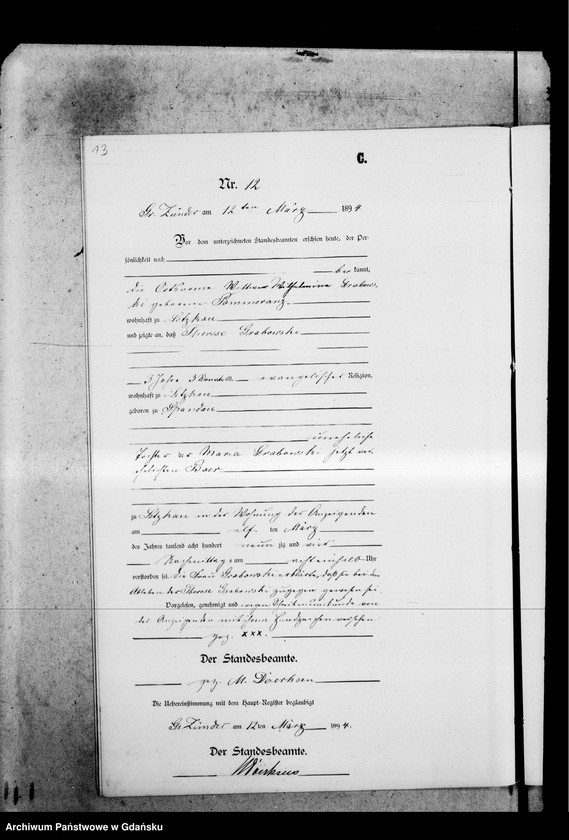 13
C.
Nr. 12
Gr. Zünder am 12ten März 1894
Vor dem unterzeichneten Standesbeamten erschien heute, der Per-
sönlichkeit nach
bekannt,
die Ortsarme Wittwe Wilhelmine Grabows-
ki geborene Pommeranz
wohnhaft zu Letzkau
und zeigte an, daß Therese Grabowski
3 Jahre 3 Monate evangelischer Religion,
wohnhaft zu Letzkau
geboren zu Spandau
uneheliche
Tochter der Maria Grabowski jetzt ver-
ehelichten Baer
zu Letzkau in der Wohnung der Anzeigenden
am elf ten März
des Jahres tausend acht hundert neunzig und vier
Nachmittags um acht einhalb Uhr
verstorben sei. Die Frau Grabowski erklärte, daß sie bei dem
Ableben der Therese Grabowski zugegen gewesen sei.
Vorgelesen, genehmigt und wegen Schreibensunkunde von
der Anzeigenden mit ihrem Handzeichen versehen
gez. xxx.
Der Standesbeamte.
gez. M. Doerksen
Die Uebereinstimmung mit dem Haupt-Register beglaubigt
Gr. Zünder am 12ten März 1894.
Der Standesbeamte.
Doerksen
Archiwum Państwowe w Gdańsku